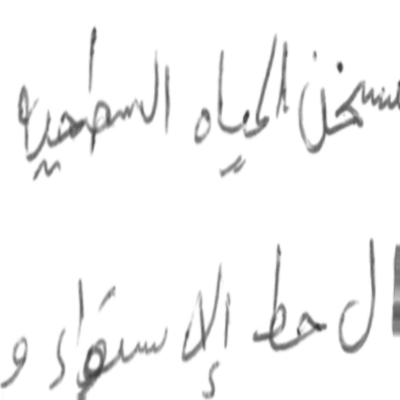 تسخن المياه السطحية
ال خط الإستواء و